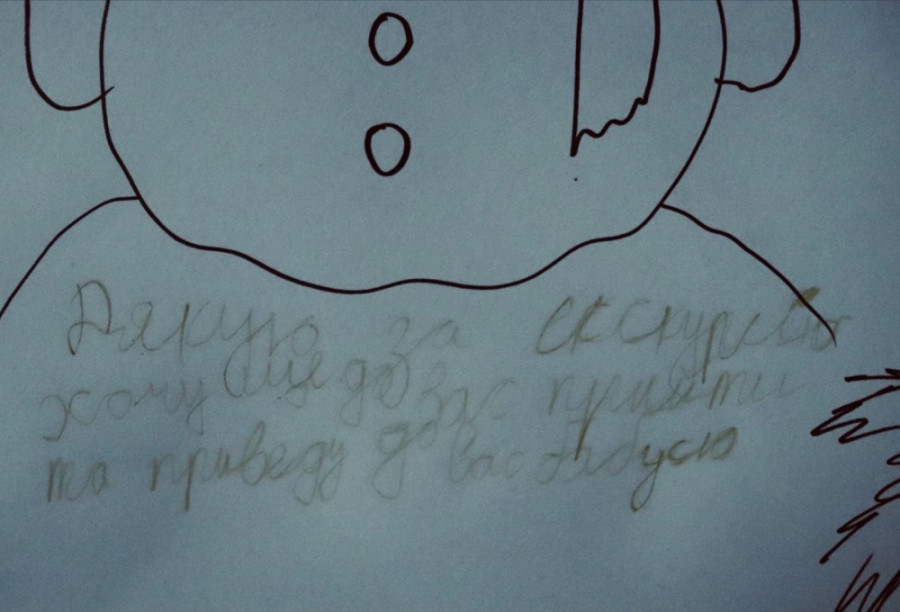 Дякую за екскурсію
хочу ще до вас прийти
та приведу до вас бабусю